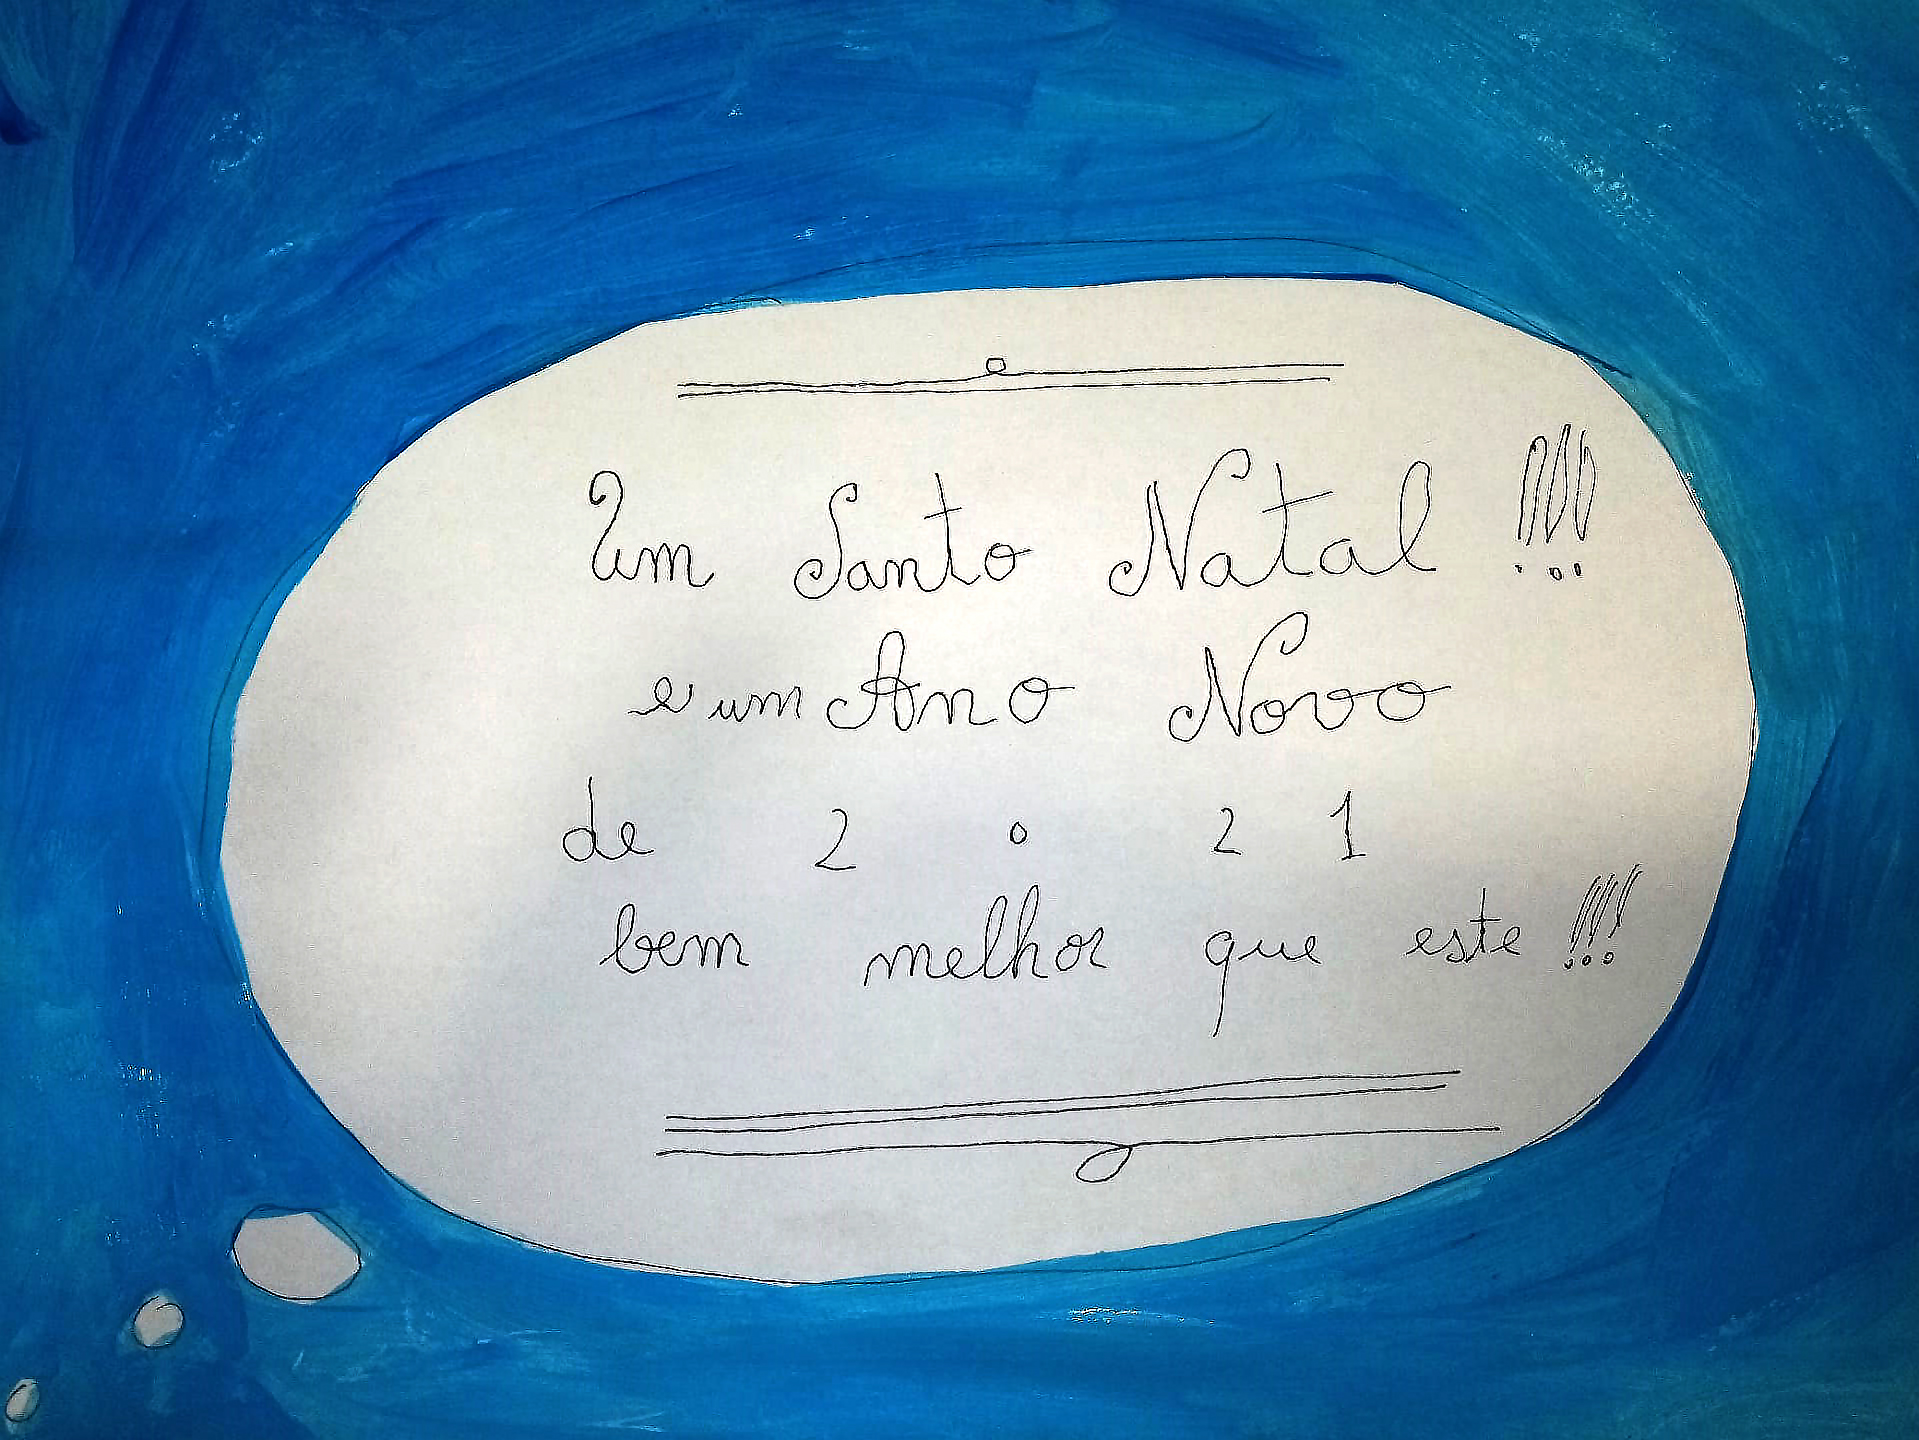 Um Santo Natal !!!
e um Ano Novo
de 2 0 2 1
bem melhor que este !!!